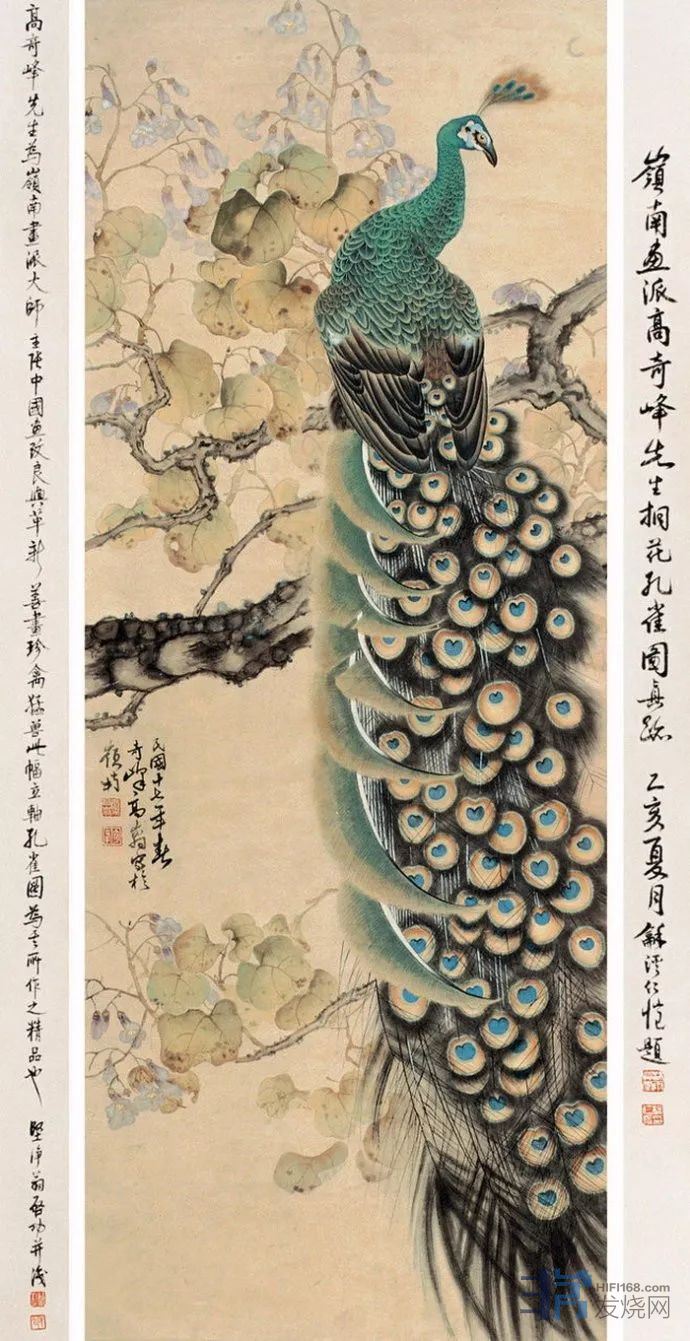 嶺南画派高奇峰先生桐花孔雀圖真跡 乙亥夏月 龢溪仁愷題
民國十七年春
奇峰高嵡寫於
高奇峰先生為嶺南畫派大師 主張中國画改良與革新 善畫珍禽猛獸此幅立軸孔雀圖為其所作之精品也 堅净翁啟功并識
HIFI168.com
发烧网